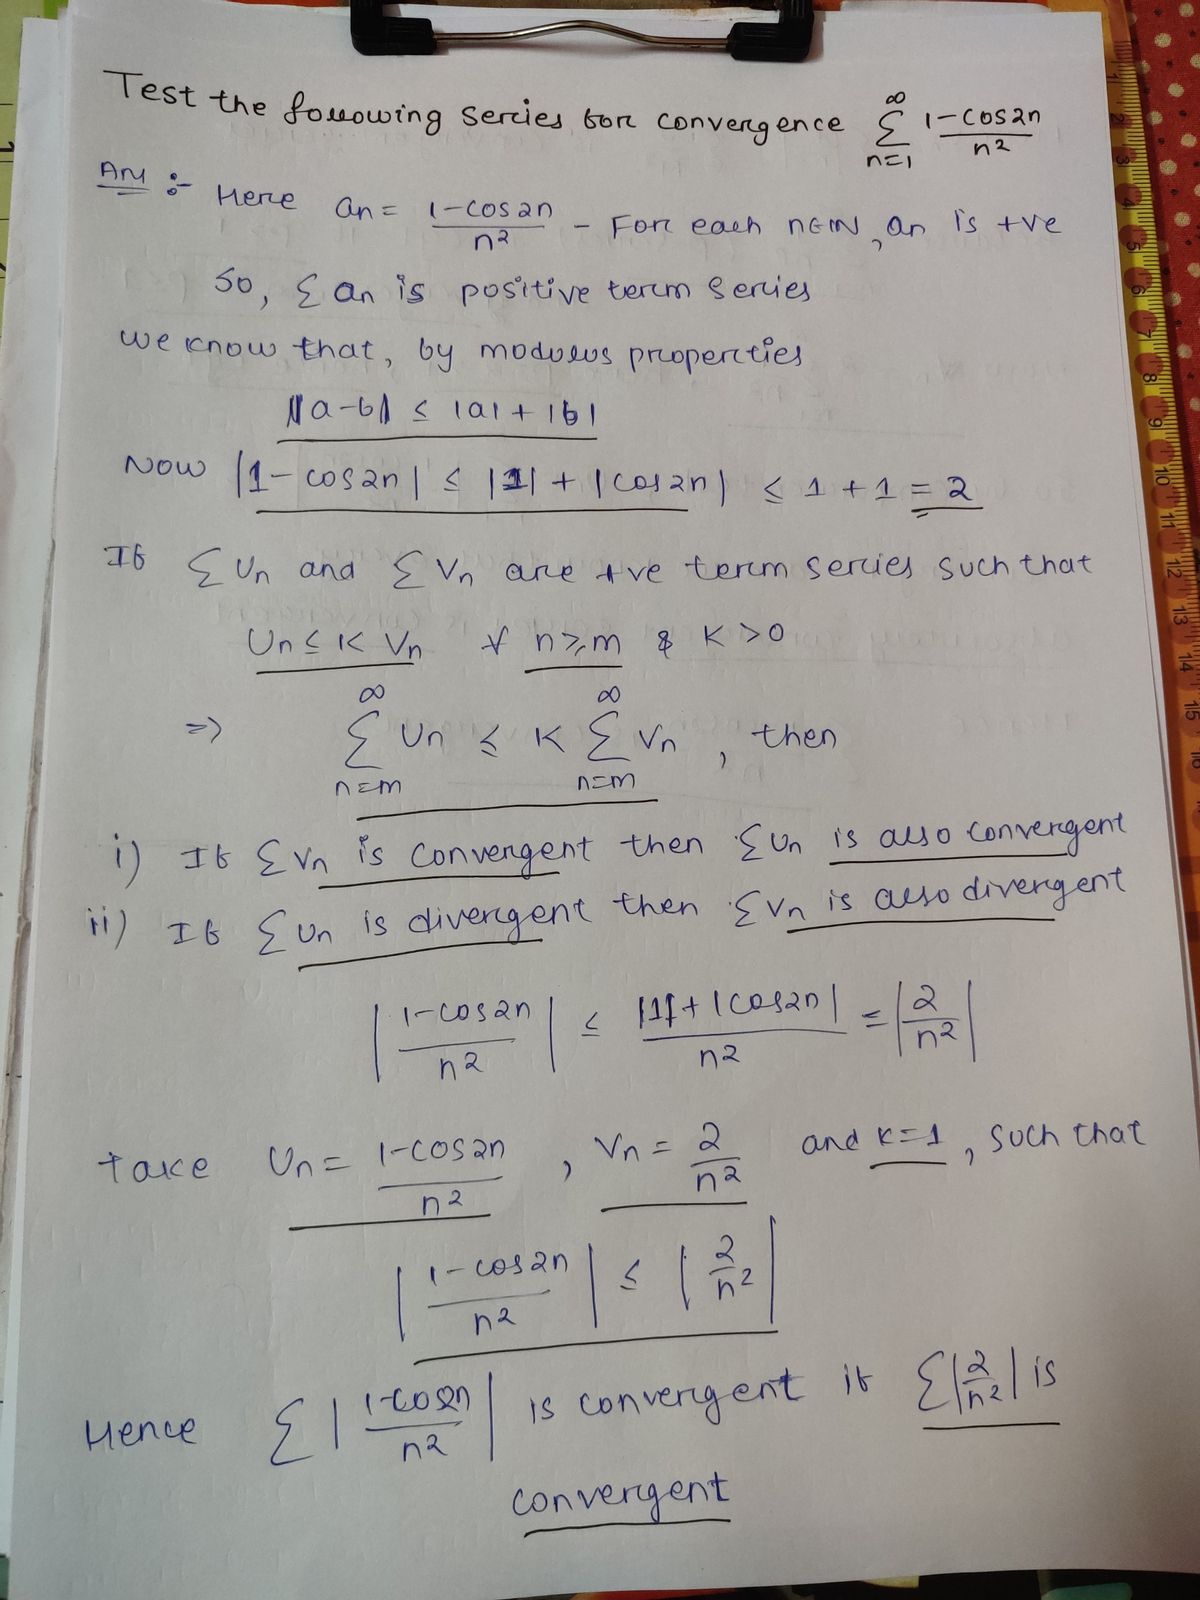 Test the following series for convergence ∞∑n=1 1-cos2n/n²
Ans :- Here an = 1-cos2n/n² - For each n∈IN, an is +ve
So, ∑an is positive term series
we know that, by modulus properties
|a-b| ≤ |a| + |b|
Now |1-cos2n| ≤ |1| + |cos2n| ≤ 1+1 = 2
If ∑Un and ∑Vn are +ve term series such that
Un ≤ K Vn ∀ n≥m & K>0
=> ∞∑n=m Un ≤ K ∞∑n=m Vn, then
i) If ∑Vn is convergent then ∑Un is also convergent
ii) If ∑Un is divergent then ∑Vn is also divergent
|1-cos2n/n²| ≤ |1|+|cos2n|/n² = |2/n²|
take Un = 1-cos2n/n², Vn = 2/n² and K=1, such that
|1-cos2n/n²| ≤ |2/n²|
Hence ∑|1-cos2n/n²| is convergent if ∑|2/n²| is
convergent